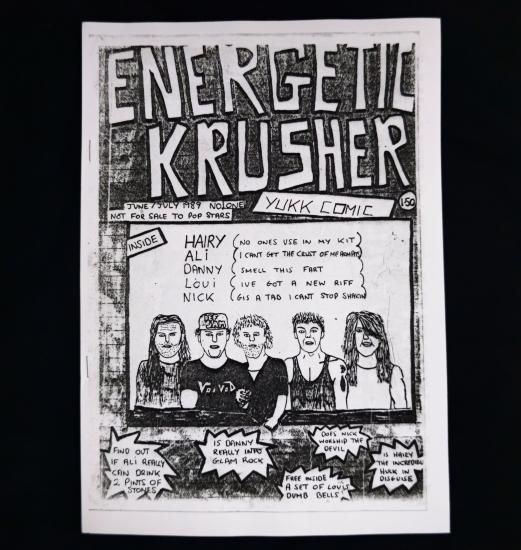 ENERGETIC
KRUSHER
JUNE/JULY 1989 NO. ONE
NOT FOR SALE TO POP STARS
YUKK COMIC
1.50
INSIDE
HAIRY (NO ONES USE IN MY KIT)
ALI (I CANT GET THE CRUST OF ME ARMPITS)
DANNY (SMELL THIS FART
LOUI (IVE GOT A NEW RIFF
NICK (GIS A TAD I CANT STOP SHAKIN)
DEF JAM
VOIVOD
FIND OUT
IF ALI REALLY
CAN DRINK
2 PINTS OF
STONES
IS DANNY
REALLY INTO
GLAM ROCK
DOES NICK
WORSHIP THE
DEVIL
FREE INSIDE
A SET OF LOUIS
DUMB BELLS
IS HAIRY
THE INCREDIBL
HULK IN
DISGUISE